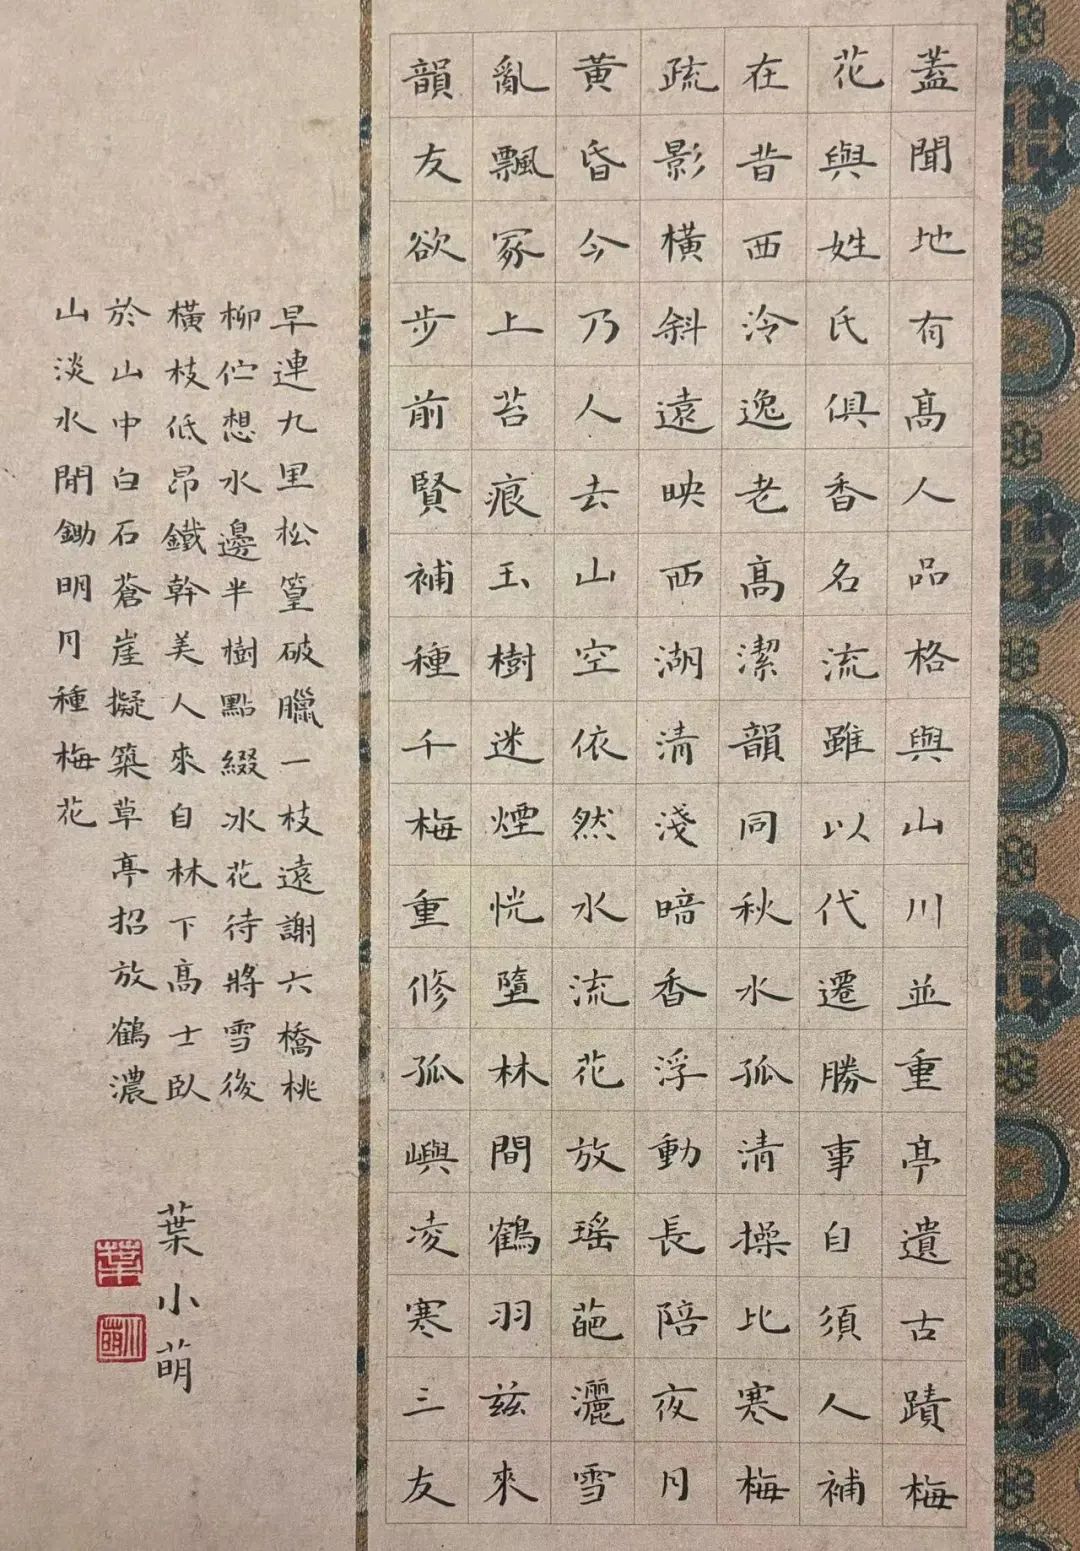 蓋聞地有高人品格與山川並重亭遺古蹟梅
花與姓氏俱香名流雖以代遷勝事自須人補
在昔西泠逸老高潔韻同秋水孤清操比寒梅
疏影橫斜遠映西湖清淺暗香浮動長陪夜月
黃昏今乃人去山空依然水流花放瑤葩灑雪
亂飄冢上苔痕玉樹迷煙恍墮林間鶴羽茲來
韻友欲步前賢補種千梅重修孤嶼凌寒三友
早連九里松篁破臘一枝遠謝六橋桃
柳伫想水邊半樹點綴冰花待將雪後
橫枝低昂鐵幹美人來自林下高士臥
於山中白石蒼崖擬築草亭招放鶴濃
山淡水閒鋤明月種梅花
葉小萌
葉
小萌